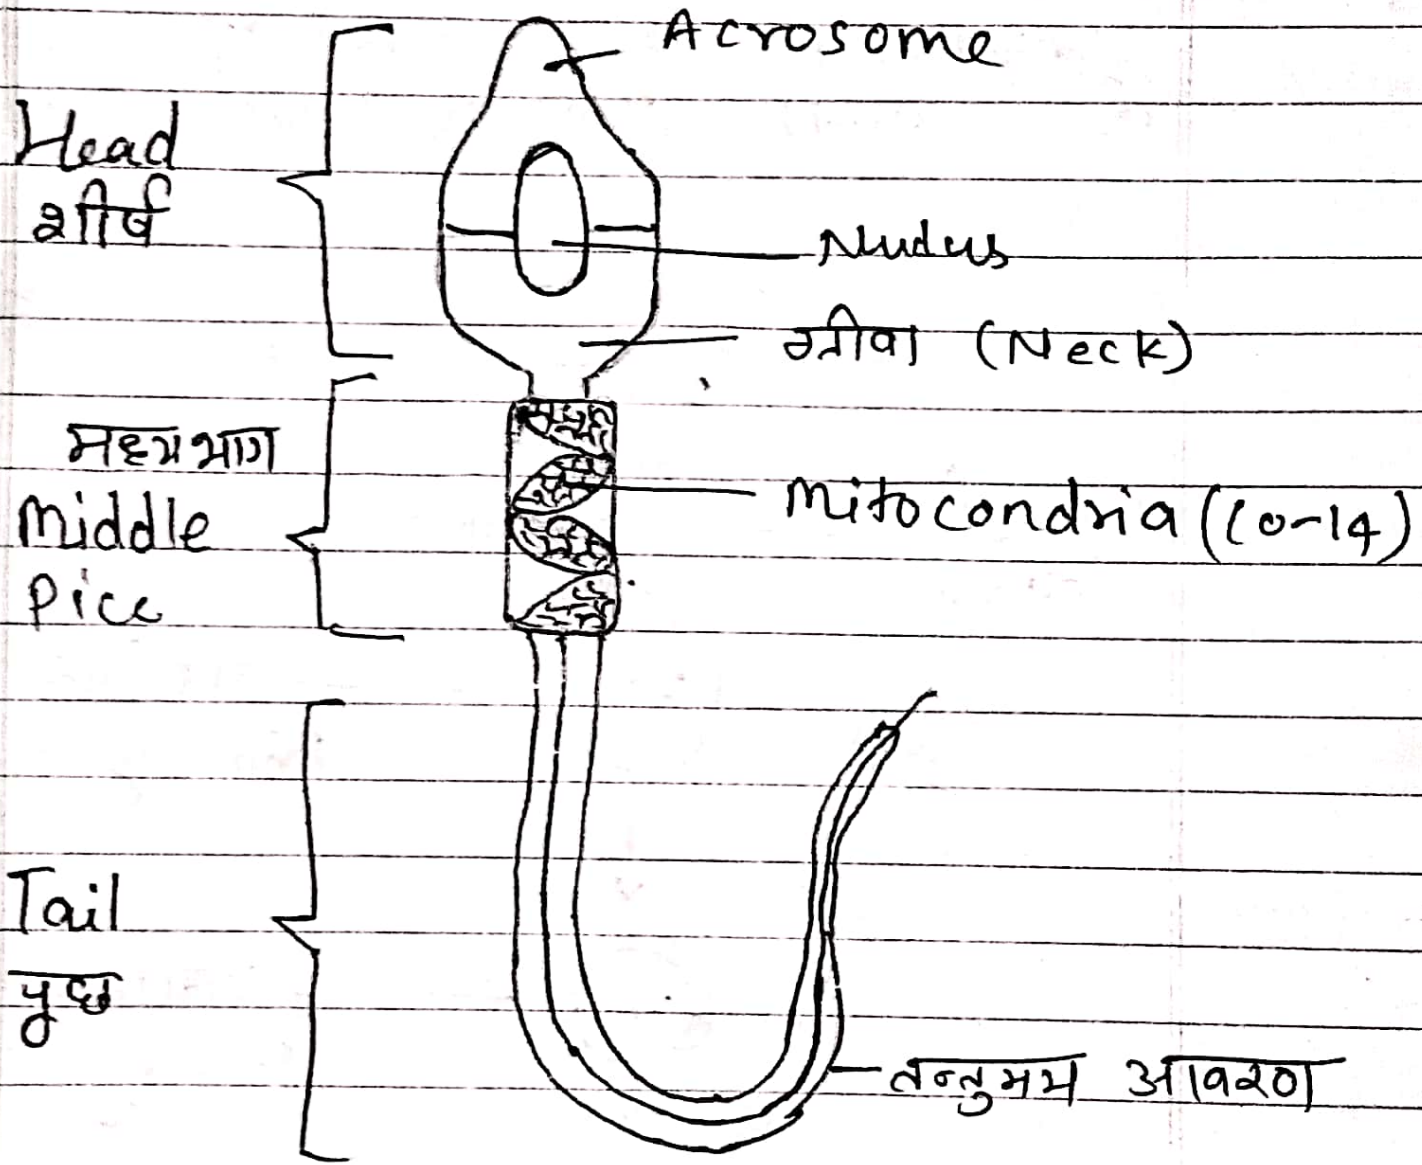 Acrosome
Head
शीर्ष
Nudus
ग्रीवा (Neck)
मध्यभाग
Middle
Pice
Mitocondria (10-14)
Tail
पूछ
तन्तुमय आवरण